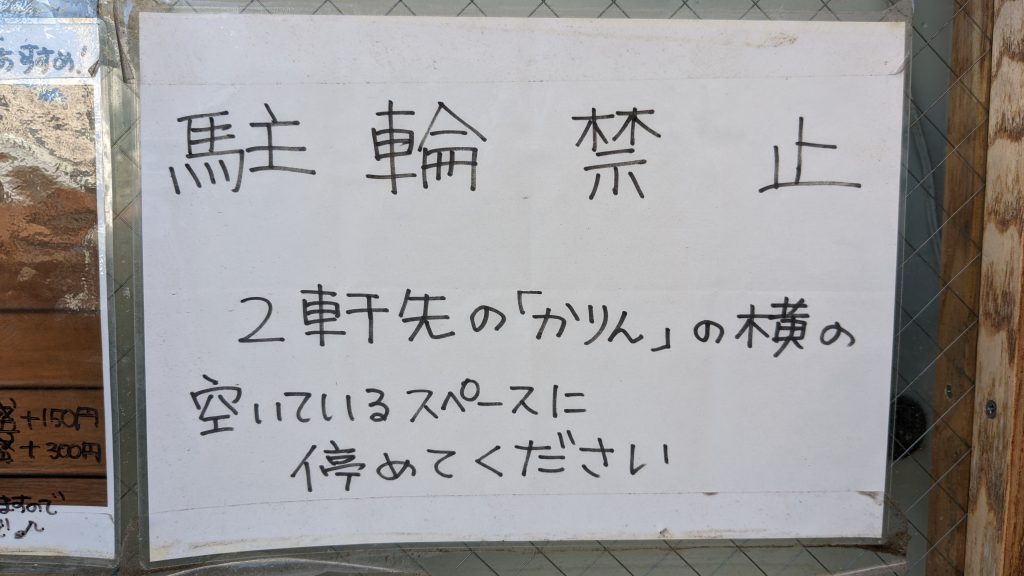 駐輪禁止
2軒先の「かりん」の横の
空いているスペースに
停めてください
おすすめ!
+150円
+300円
ますので